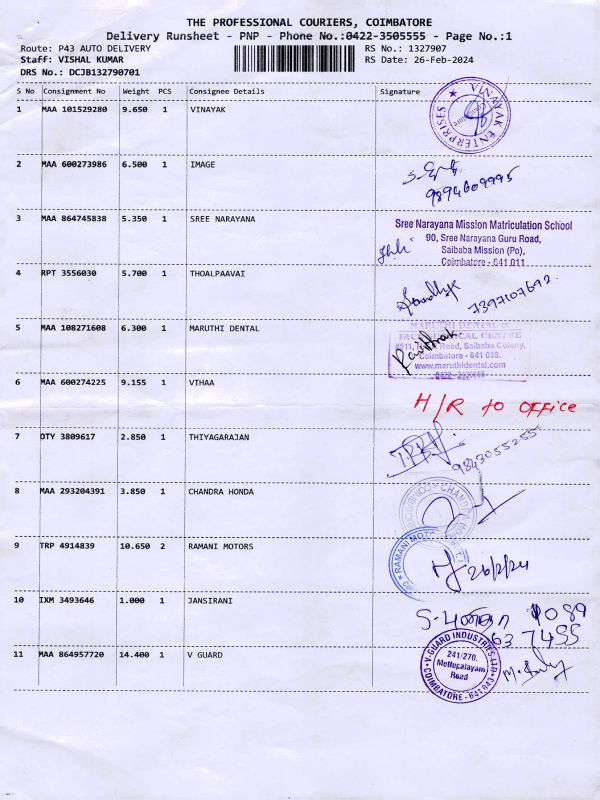 THE PROFESSIONAL COURIERS, COIMBATORE
Delivery Runsheet - PNP - Phone No.:0422-3505555 - Page No.:1
Route: P43 AUTO DELIVERY RS No.: 1327907
Staff: VISHAL KUMAR RS Date: 26-Feb-2024
DRS No.: DCJB132790701
S No Consignment No Weight PCS Consignee Details Signature
1 MAA 101529280 9.650 1 VINAYAK
VINAYAK ENTERPRISES
2 MAA 600273986 6.500 1 IMAGE
9894609995
3 MAA 864745838 5.350 1 SREE NARAYANA
Sree Narayana Mission Matriculation School
90, Sree Narayana Guru Road,
Saibaba Mission (Po),
Coimbatore - 641 011
4 RPT 3556030 5.700 1 THOALPAAVAI
7397107692.
5 MAA 108271608 6.300 1 MARUTHI DENTAL
MARUTHI DENTAL &
FACIAL CENTRE
Road, Saibaba Colony,
Coimbatore - 641 038.
www.maruthidental.com
6 MAA 600274225 9.155 1 VIHAA
H/R to OFFICE
7 OTY 3809617 2.850 1 THIYAGARAJAN
9843055255
8 MAA 293204391 3.850 1 CHANDRA HONDA
CHANDRA HONDA
9 TRP 4914839 10.650 2 RAMANI MOTORS
RAMANI MOTO
26/2/24
10 IXM 3493646 1.000 1 JANSIRANI
11 MAA 864957720 14.400 1 V GUARD
V-GUARD INDUSTRIES LTD
241/270,
Mettupalayam
Road
COIMBATORE - 641 043